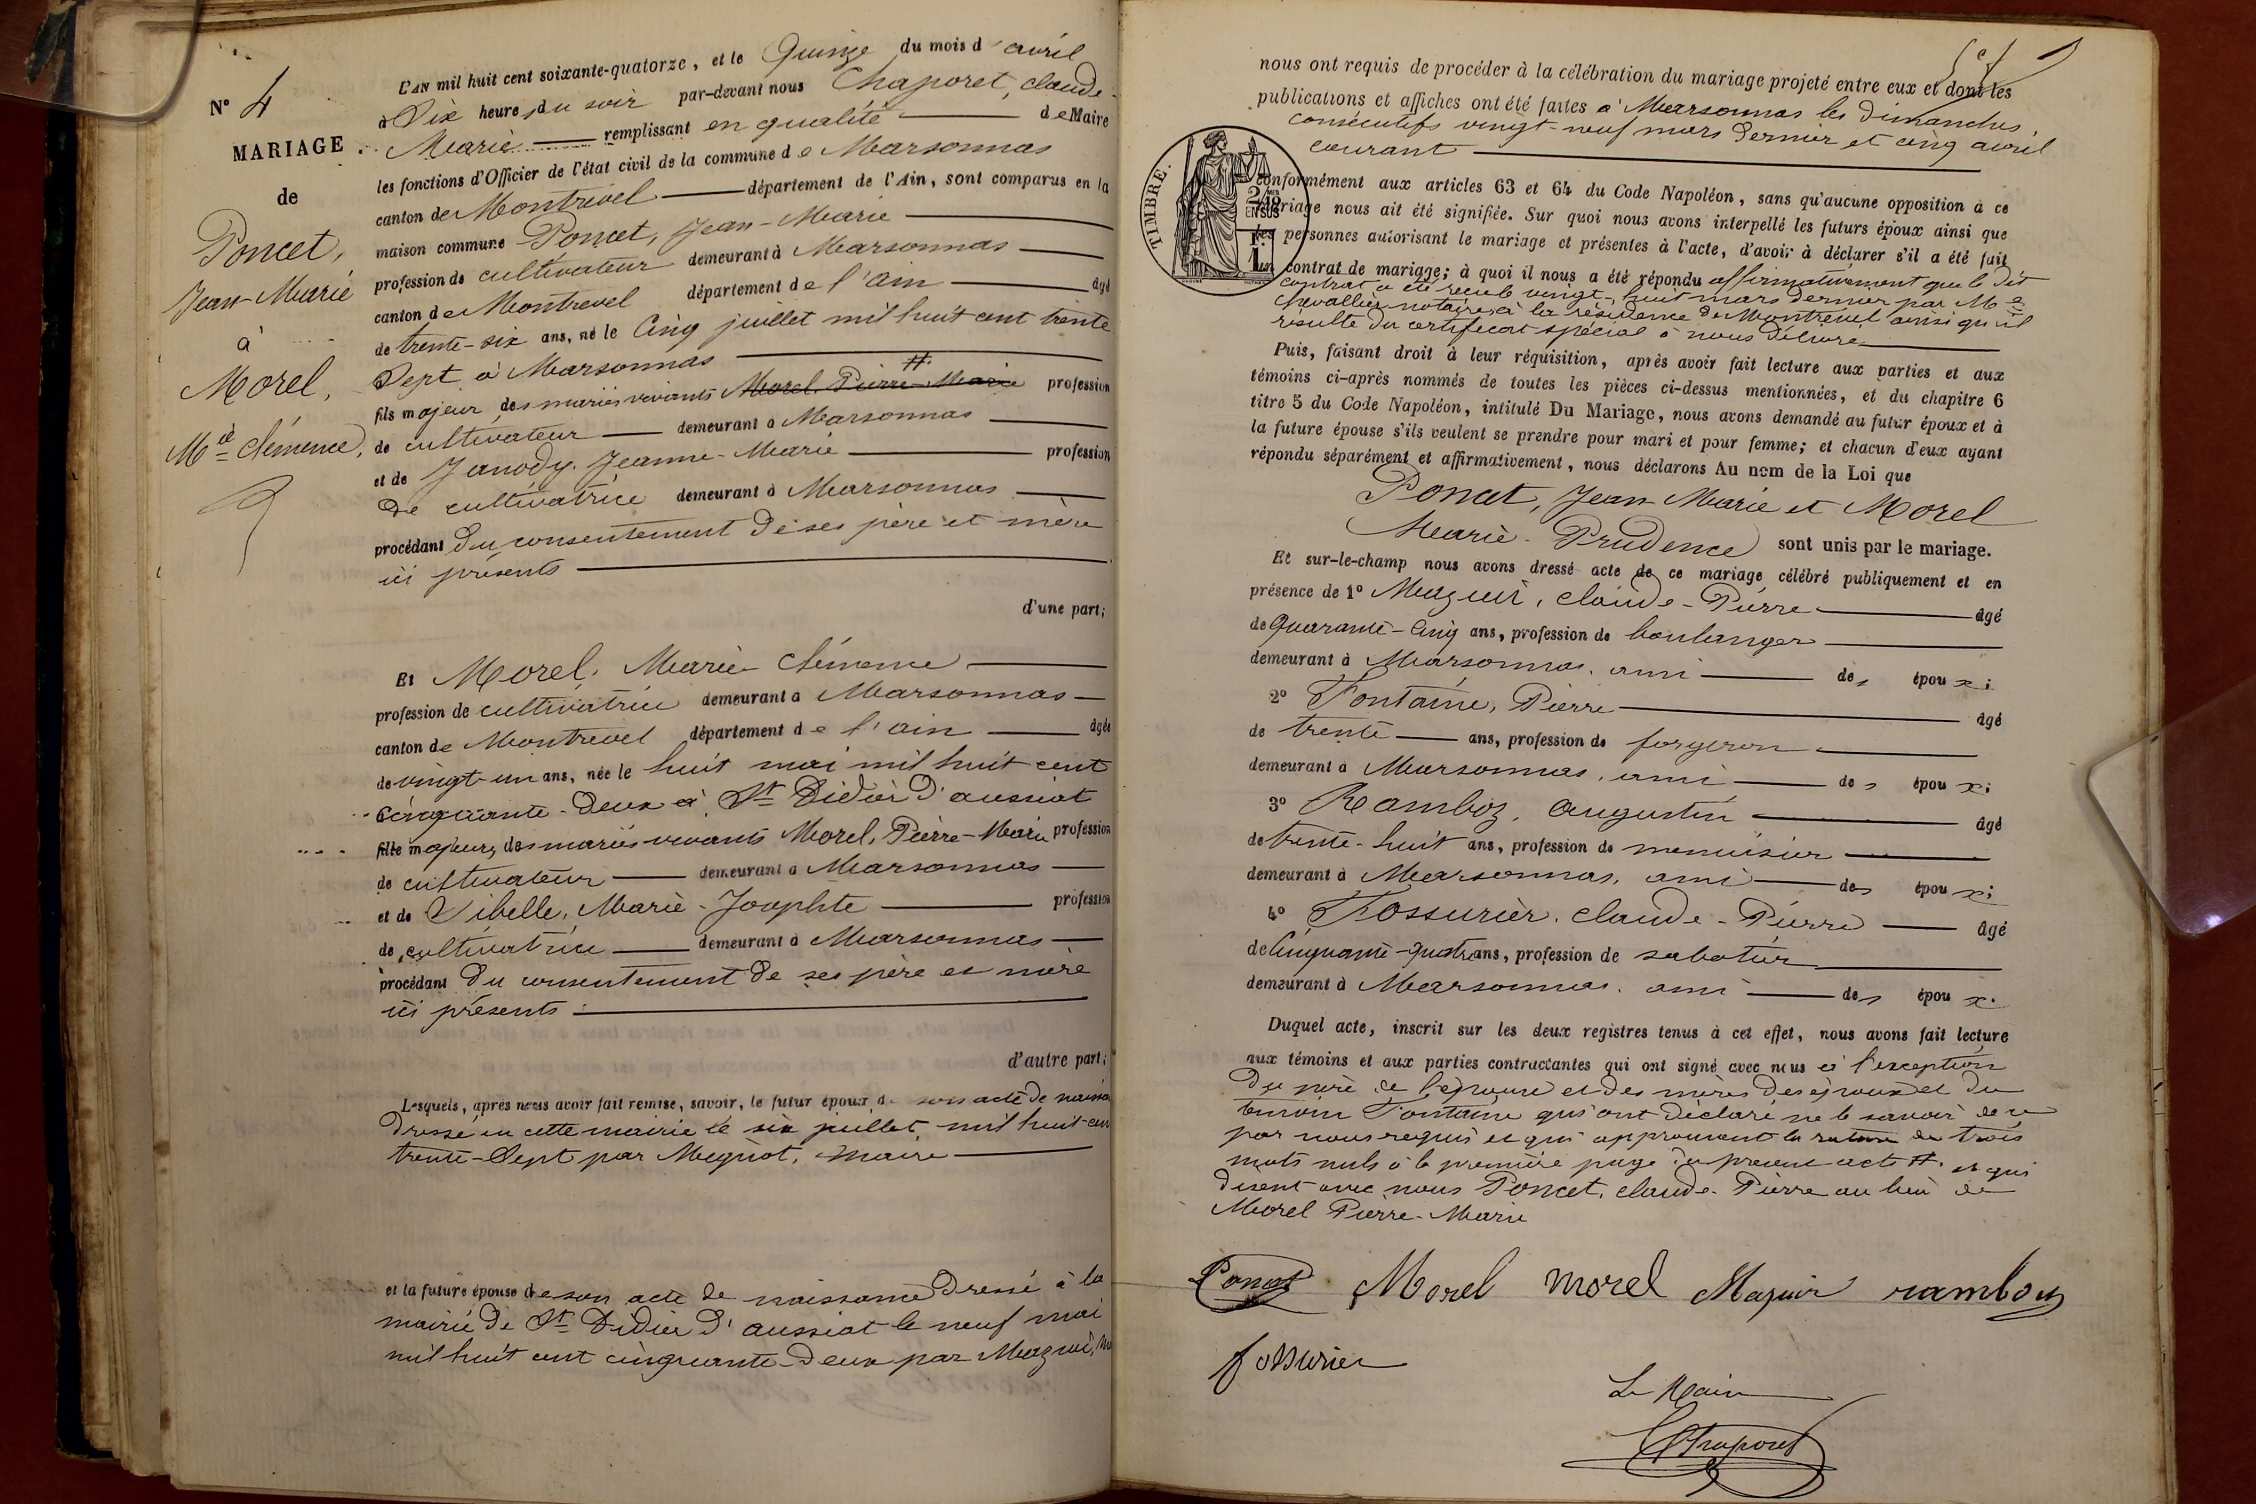 N° 4
MARIAGE
de
Poncet,
Jean-Marie
à
Morel,
Mie Clémence,
L'AN mil huit cent soixante-quatorze, et le Quinze du mois d'avril
à Six heures du soir par-devant nous Chaporet, Claude-
Marie remplissant en qualité de Maire
les fonctions d'Officier de l'état civil de la commune de Marsonnas
canton de Montrevel département de l'Ain, sont comparus en la
maison commune Poncet, Jean-Marie
profession de cultivateur demeurant à Marsonnas
canton de Montrevel département de l'ain âgé
de trente-six ans, né le Cinq juillet mil huit cent trente
Sept à Marsonnas
#
fils majeur des mariés vivants Morel Pierre-Marie profession
de cultivateur demeurant à Marsonnas
et de Janody Jeanne-Marie profession
de cultivatrice demeurant à Marsonnas
procédant du consentement de ses père et mère
ici présents
d'une part;
Et Morel, Marie Clémence
profession de cultivatrice demeurant à Marsonnas
canton de Montrevel département de l'ain âgée
de vingt-un ans, née le huit mai mil huit cent
cinquante-deux à St Didier d'aussiat
fille majeure, des mariés vivants Morel, Pierre-Marie profession
de cultivateur demeurant à Marsonnas
et de Sibelle, Marie-Josephte profession
de cultivatrice demeurant à Marsonnas
procédant du consentement de ses père et mère
ici présents
d'autre part;
Lesquels, après nous avoir fait remise, savoir, le futur époux de son acte de naissa
dressé en cette mairie le six juillet mil huit-cen
trente-Sept par Mignot, maire
et la future épouse de son acte de naissance dressé à la
mairie de St Didier d'aussiat le neuf mai
mil huit cent cinquante-deux par
nous ont requis de procéder à la célébration du mariage projeté entre eux et dont les
publications et affiches ont été faites à Marsonnas les dimanches
consécutifs vingt-neuf mars dernier et cinq avril
courant
TIMBRE.
2/10 EN SUS
conformément aux articles 63 et 64 du Code Napoléon, sans qu'aucune opposition à ce
mariage nous ait été signifiée. Sur quoi nous avons interpellé les futurs époux ainsi que
les personnes autorisant le mariage et présentes à l'acte, d'avoir à déclarer s'il a été fait
un contrat de mariage; à quoi il nous a été répondu affirmativement que le dit
contrat a été reçu le vingt-huit mars dernier par Me
Chevallier notaire à la résidence de Montrevel ainsi qu'il
résulte du certificat spécial à nous délivré.
Puis, faisant droit à leur réquisition, après avoir fait lecture aux parties et aux
témoins ci-après nommés de toutes les pièces ci-dessus mentionnées, et du chapitre 6
titre 5 du Code Napoléon, intitulé Du Mariage, nous avons demandé au futur époux et à
la future épouse s'ils veulent se prendre pour mari et pour femme; et chacun d'eux ayant
répondu séparément et affirmativement, nous déclarons Au nom de la Loi que
Poncet, Jean Marie et Morel
Marie-Prudence sont unis par le mariage.
Et sur-le-champ nous avons dressé acte de ce mariage célébré publiquement et en
présence de 1° Mazuir, Claude-Pierre âgé
de Quarante-Cinq ans, profession de boulanger
demeurant à Marsonnas, ami des époux;
2° Fontaine, Pierre âgé
de trente ans, profession de forgeron
demeurant à Marsonnas, ami des époux;
3° Ramboz, Augustin âgé
de trente-huit ans, profession de menuisier
demeurant à Marsonnas, ami des époux;
4° Fossurier, Claude-Pierre âgé
de Cinquante-quatre ans, profession de sabotier
demeurant à Marsonnas, ami des époux.
Duquel acte, inscrit sur les deux registres tenus à cet effet, nous avons fait lecture
aux témoins et aux parties contractantes qui ont signé avec nous à l'exception
du père de l'épouse et des mères des époux et du
témoin Fontaine qui ont déclaré ne le savoir de ce
par nous requis et qui approuvent la rature de trois
mots nuls à la première page du présent acte #. et qui
disent avec nous Poncet, Claude-Pierre au lieu de
Morel Pierre-Marie
Poncet Morel Morel Mazuir ramboz
fossurier
Le Maire
Chaporet